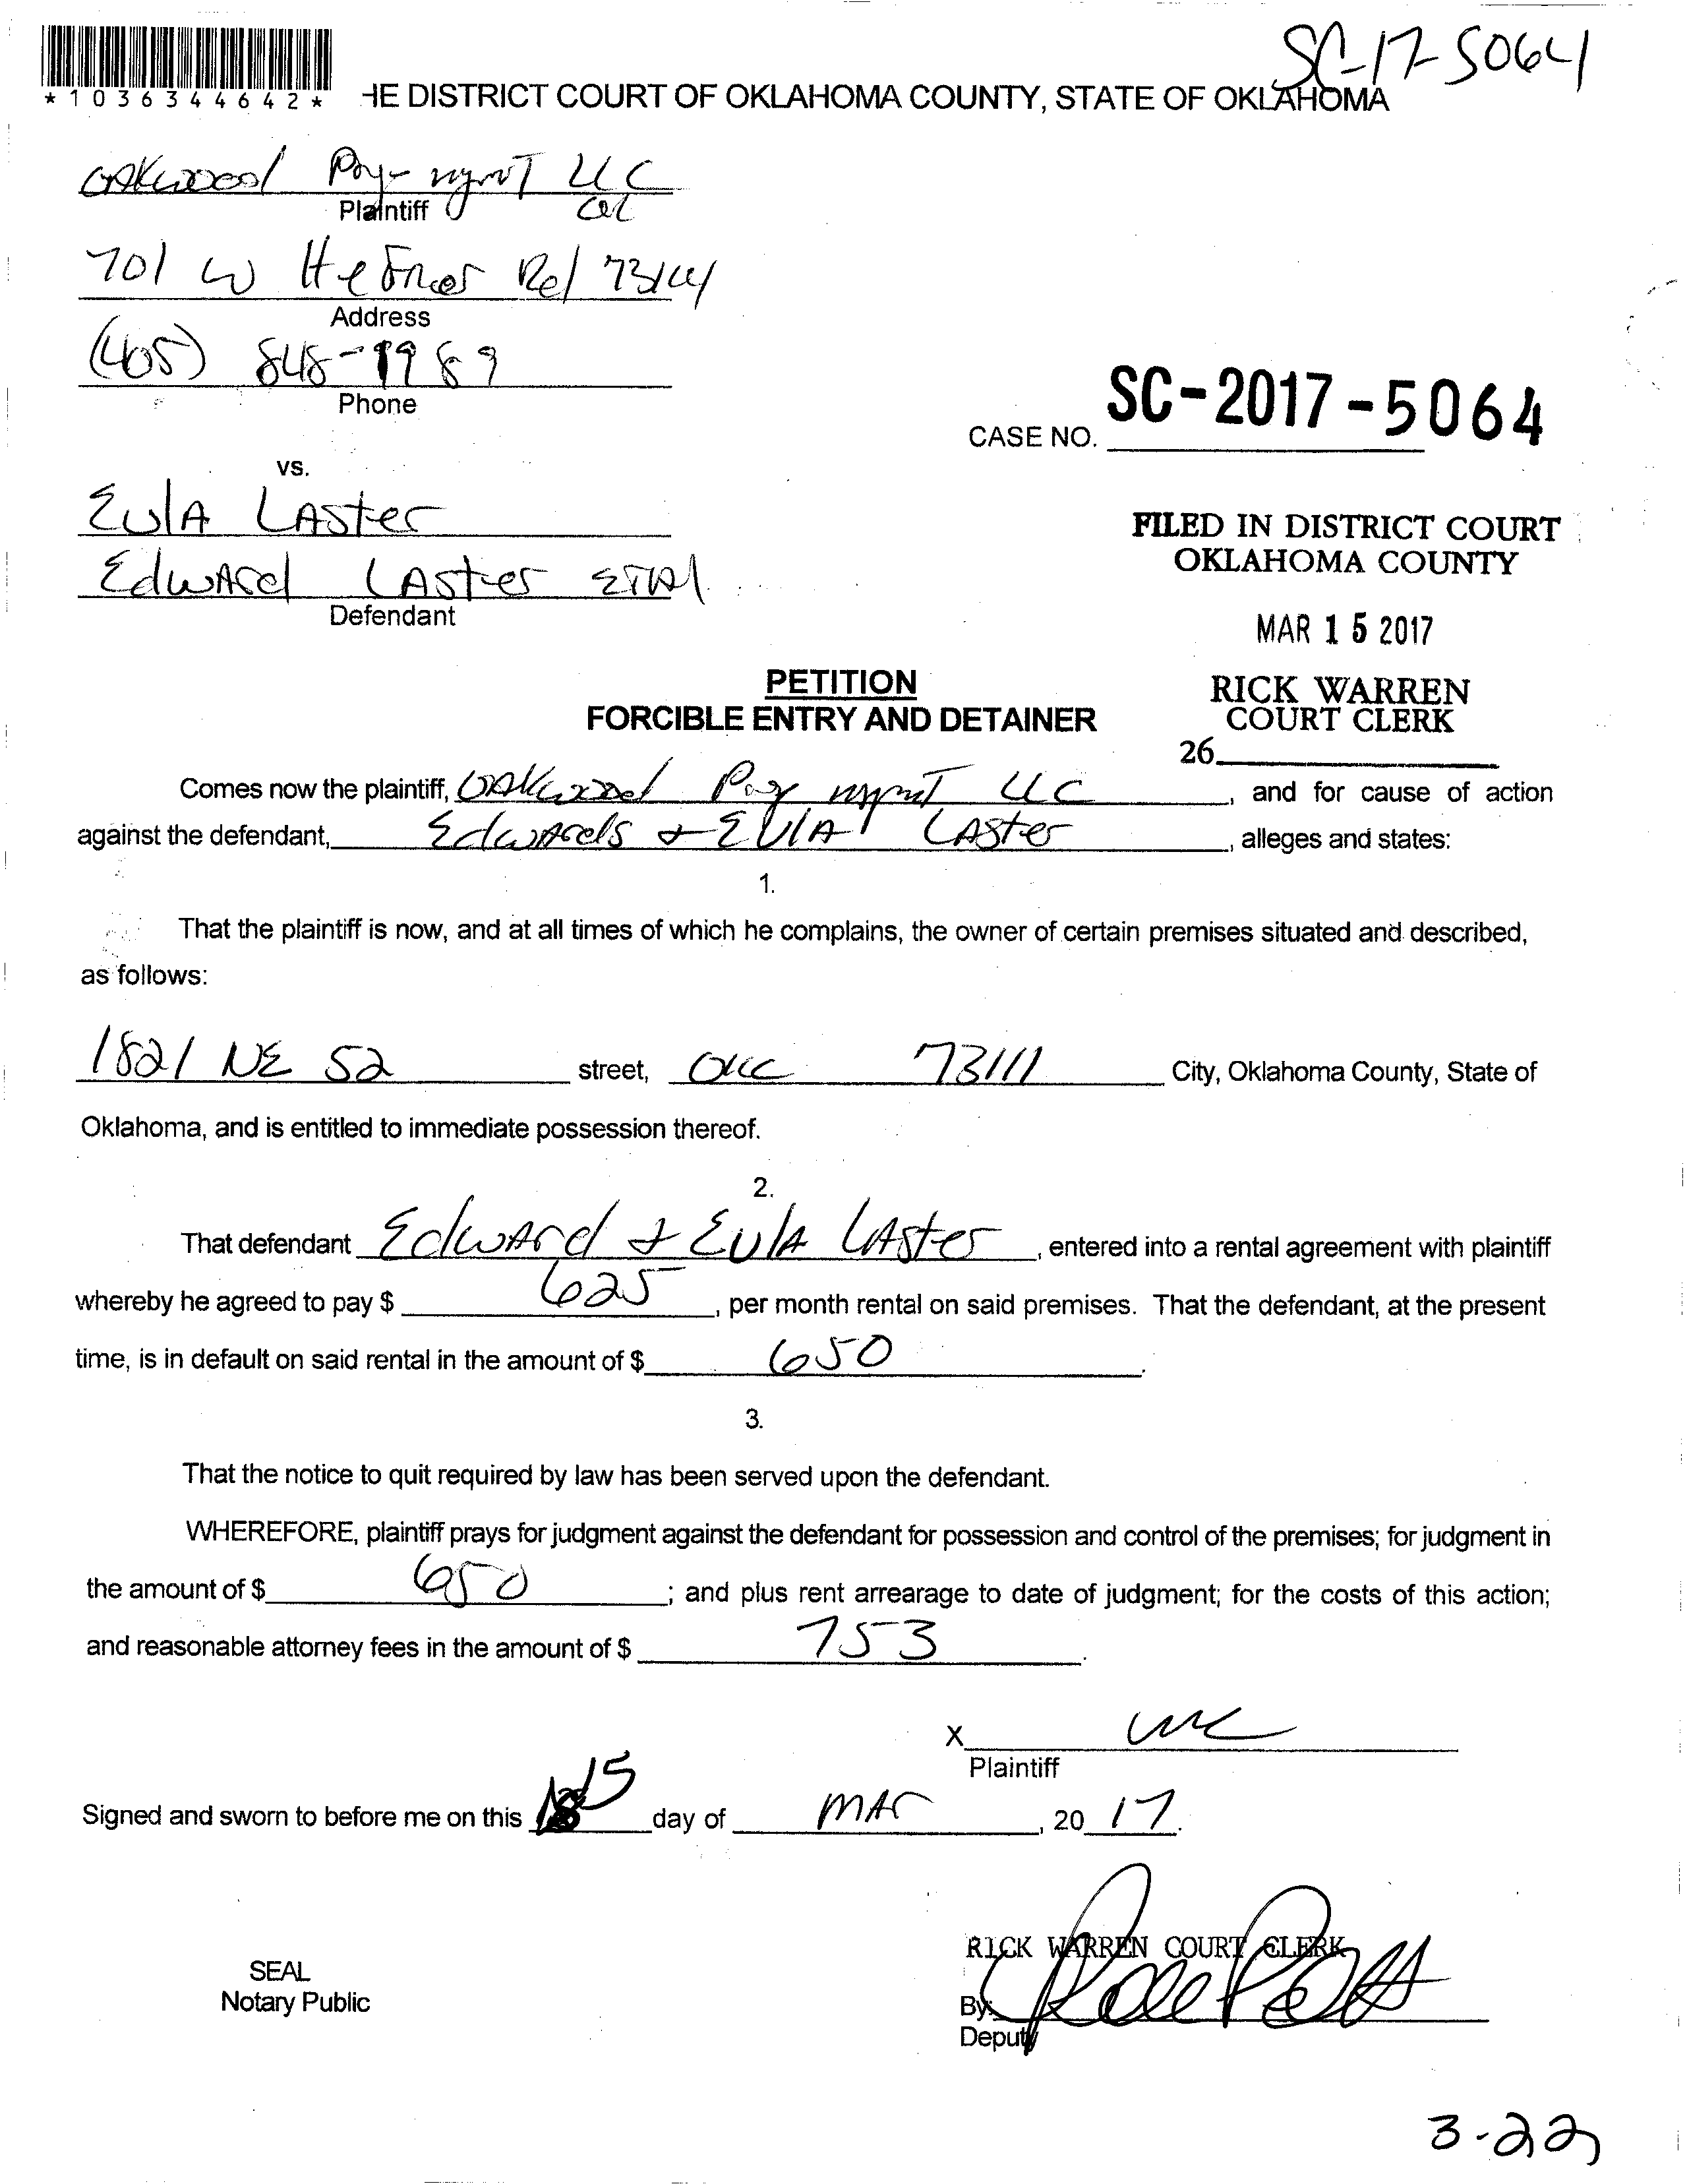 SC-17-5064
*1036344642*
HE DISTRICT COURT OF OKLAHOMA COUNTY, STATE OF OKLAHOMA
OAKwood mgmT LLC
Plaintiff
701 W HeFner Rd 73114
Address
(405) 848-1989
Phone
SC-2017-5064
CASE NO.
vs.
EulA LAster
FILED IN DISTRICT COURT
OKLAHOMA COUNTY
EdwArd LAster ETAl
Defendant
MAR 15 2017
PETITION
RICK WARREN
FORCIBLE ENTRY AND DETAINER
COURT CLERK
26
Comes now the plaintiff, OAKwood mgmT LLC, and for cause of action
against the defendant, EdwArds & EulA LAster, alleges and states:
1.
That the plaintiff is now, and at all times of which he complains, the owner of certain premises situated and described,
as follows:
1821 NE 52 street, OKC 73111 City, Oklahoma County, State of
Oklahoma, and is entitled to immediate possession thereof.
2.
That defendant EdwArd & EulA LAster, entered into a rental agreement with plaintiff
whereby he agreed to pay $ 625, per month rental on said premises. That the defendant, at the present
time, is in default on said rental in the amount of $ 650.
3.
That the notice to quit required by law has been served upon the defendant.
WHEREFORE, plaintiff prays for judgment against the defendant for possession and control of the premises; for judgment in
the amount of $ 650; and plus rent arrearage to date of judgment; for the costs of this action;
and reasonable attorney fees in the amount of $ 753.
X
Plaintiff
Signed and sworn to before me on this 15 day of MAr, 20 17.
RICK WARREN COURT CLERK
SEAL
Notary Public
By:
Deputy
3-22